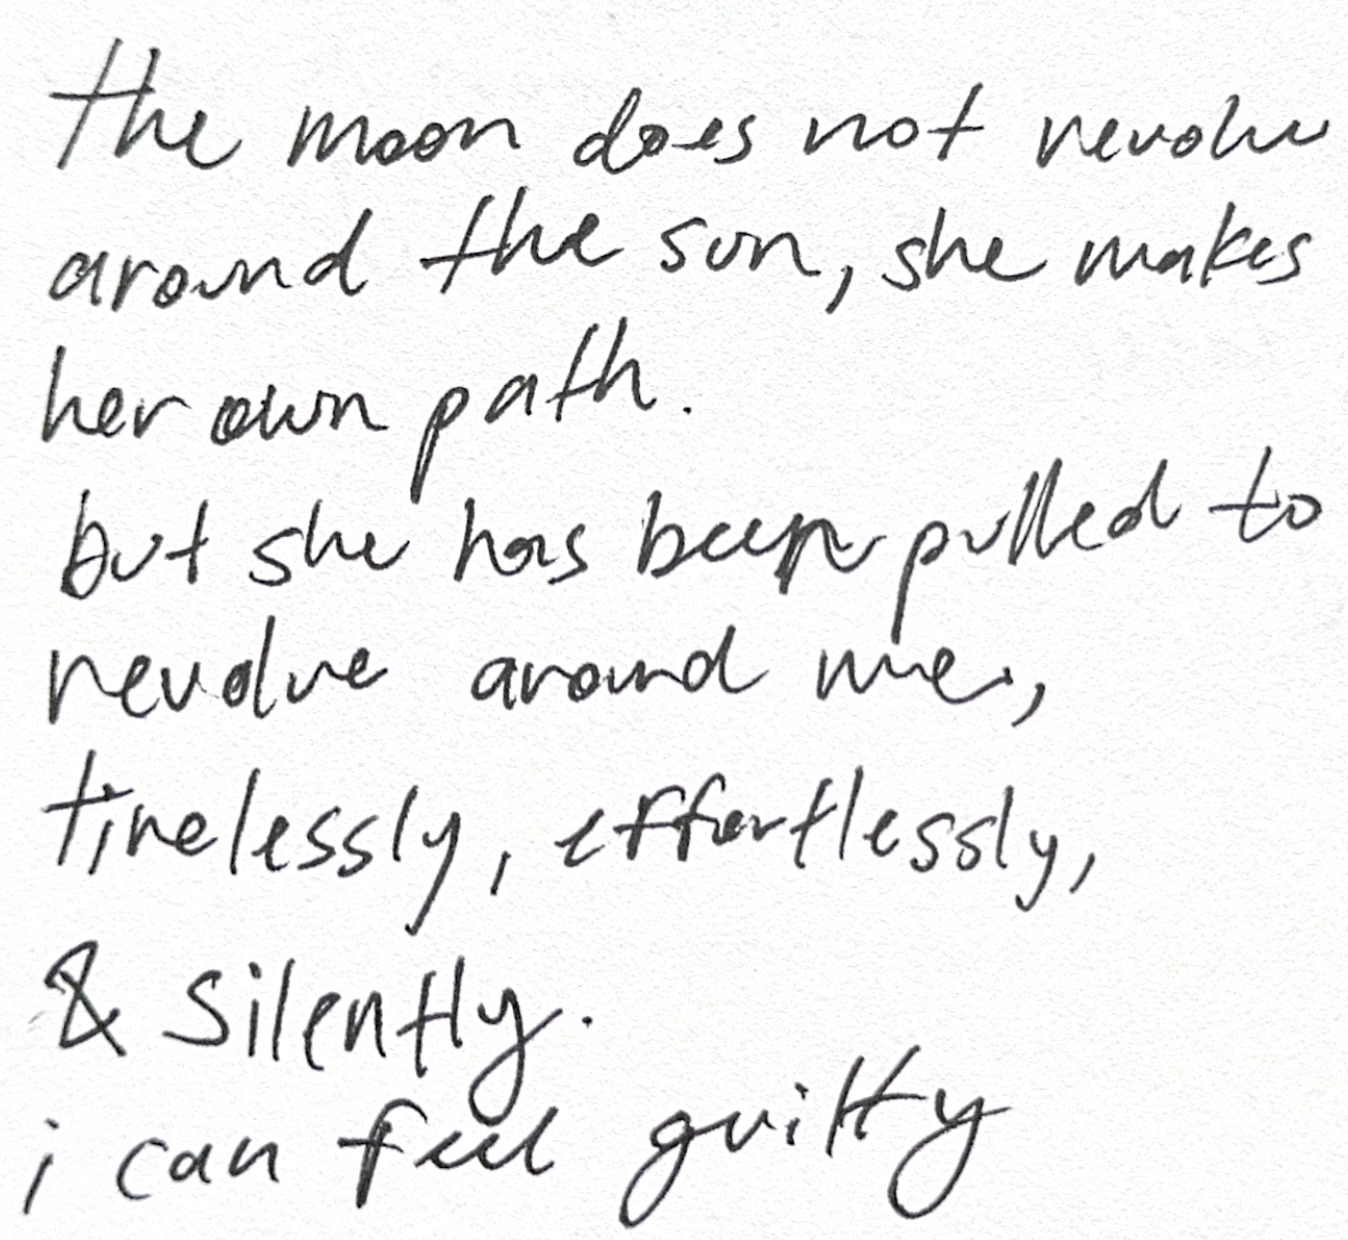 the moon does not revolve
around the sun, she makes
her own path.
but she has been pulled to
revolve around me,
timelessly, effortlessly,
& silently.
i can feel guilty